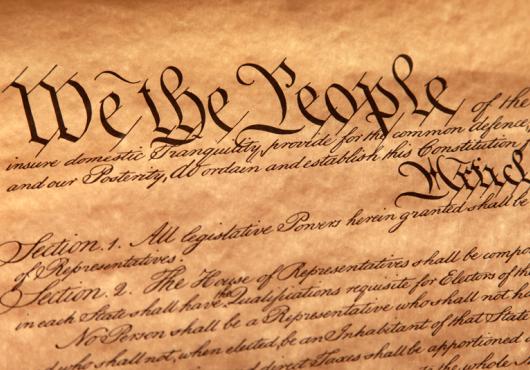 We the People of the
insure domestic Tranquility, provide for the common defence,
and our Posterity, do ordain and establish this Constitution
Articl
Section. 1. All legislative Powers herein granted shall be
of Representatives.
Section. 2. The House of Representatives shall be compo
in each State shall have the Qualifications requisite for Electors of the
No Person shall be a Representative who shall not ha
who shall not, when elected, be an Inhabitant of that State
and direct Taxes shall be apportioned a
the whole N